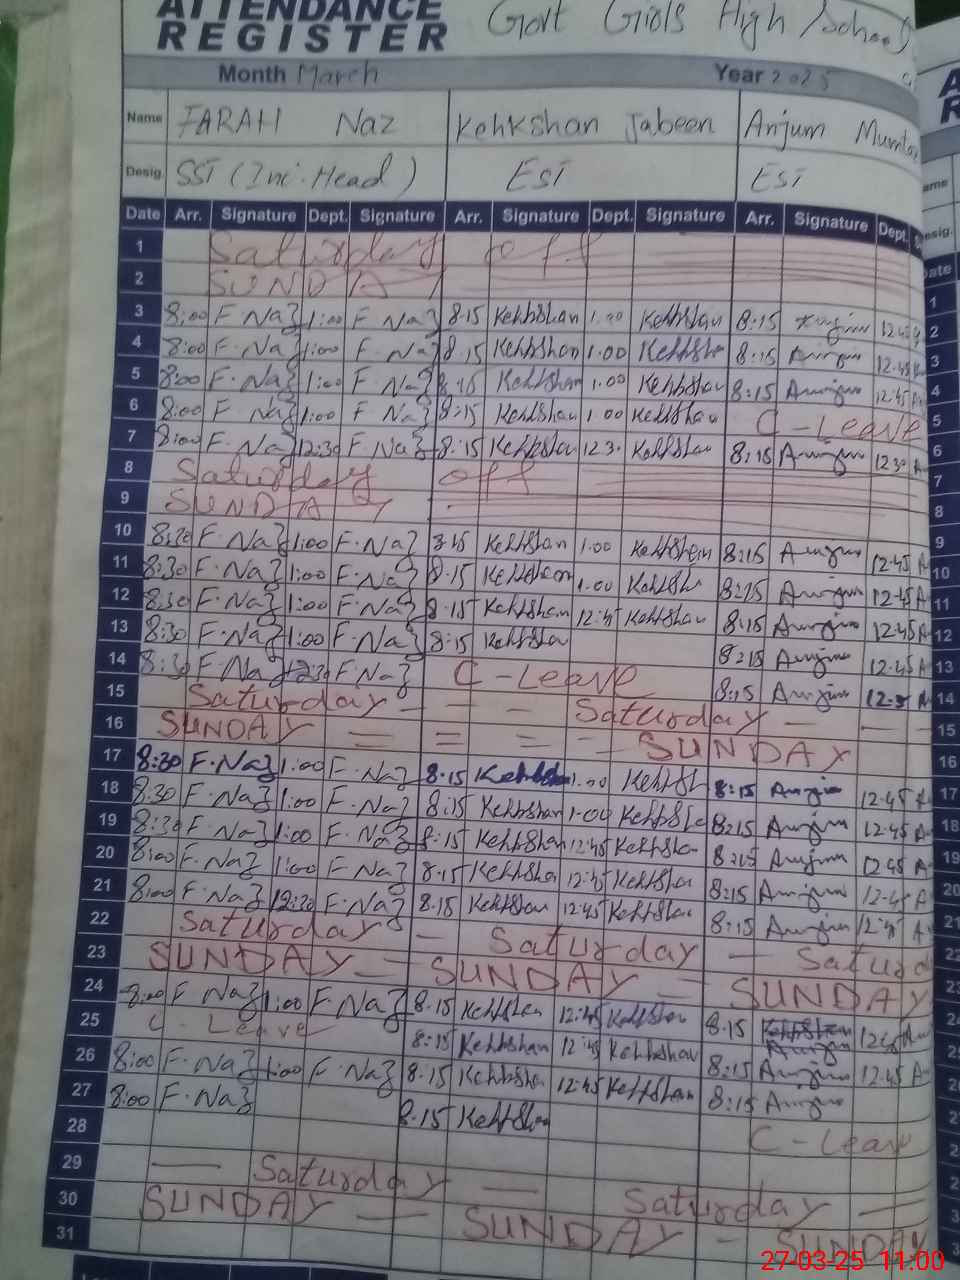 ATTENDANCE Govt Girls High School
REGISTER
Month March Year 2025
Name FARAH Naz Kehkshan Jabeen Anjum
Desig. SST (Inc. Head) EST EST
Date Arr. Signature Dept. Signature Arr. Signature Dept. Signature Arr. Signature Dept.
1 Saturday off
2 SUNDAY
3 8:00 F Naz 1:00 F Naz 8.15 Kehkshan 1.00 Kehkshan 8:15 Anjum 12.45
4 8:00 F. Naz 1:00 F. Naz 8.15 Kehkshan 1.00 Kehkshan 8:15 Anjum 12.45
5 8:00 F. Naz 1:00 F. Naz 8:15 Kehkshan 1.00 Kehkshan 8:15 Anjum 12.45
6 8:00 F Naz 1:00 F. Naz 8:15 Kehkshan 1.00 Kehkshan C - Leave
7 8:00 F. Naz 12:30 F. Naz 8:15 Kehkshan 12.30 Kehkshan 8:15 Anjum 12.30
8 Saturday off
9 SUNDAY
10 8:30 F. Naz 1:00 F. Naz 8.15 Kehkshan 1.00 Kehkshan 8:15 Anjum 12.45
11 8:30 F. Naz 1:00 F. Naz 8.15 Kehkshan 1.00 Kehksh 8:15 Anjum 12.45
12 8:30 F. Naz 1:00 F. Naz 8.15 Kehkshan 12:45 Kehkshan 8:15 Anjum 12.45
13 8:30 F. Naz 1:00 F. Naz 8:15 Kehkshan 8:15 Anjum 12.45
14 8:30 F. Naz 12:30 F. Naz C - Leave 8:15 Anjum
15 Saturday - - - Saturday -
16 SUNDAY = = - - SUNDAY
17 8:30 F. Naz 1:00 F. Naz 8.15 Kehkshan 1.00 Kehksh 8:15 Anjum 12.45
18 8:30 F. Naz 1:00 F. Naz 8:15 Kehkshan 1.00 Kehkshan 8:15 Anjum 12.45
19 8:30 F. Naz 1:00 F. Naz 8:15 Kehkshan 12:45 Kehkshan 8:15 Anjum 12.45
20 8:00 F. Naz 1:00 F. Naz 8.15 Kehkshan 12:45 Kehkshan 8:15 Anjum 12.45
21 8:00 F. Naz 12:30 F. Naz 8.15 Kehkshan 12:45 Kehkshan 8:15 Anjum 12:45
22 Saturday - Saturday - Saturd
23 SUNDAY - SUNDAY - SUNDAY
24 8:00 F Naz 1:00 F. Naz 8.15 Kehkshan 12:45 Kehkshan 8.15 Anjum 12.45
25 C - Leave 8:15 Kehkshan 12:45 Kehkshan 8:15 Anjum 12.45
26 8:00 F. Naz 1:00 F. Naz 8.15 Kehkshan 12.45 Kehkshan 8:15 Anjum
27 8:00 F. Naz 8.15 Kehkshan C - Leave
28
29 - Saturday - Saturday -
30 SUNDAY - SUNDAY - SUNDAY
31
27-03-25 11:00